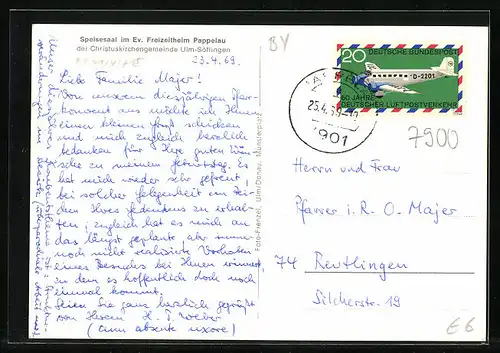 Speisesaal im Ev. Freizeitheim Pappelau
der Christuskirchengemeinde Ulm-Söflingen
23.4.69
Liebe Familie Majer!
Von unserem diesjährigen Pfar-
konvent aus möchte ich Ihnen
einen kleinen Gruß schicken
und mich zugleich herzlich
bedanken für Ihre guten Wün-
sche zu meinem Geburtstag. Es
hat mich wieder sehr gefreut,
bei solcher Gelegenheit ein Zei-
chen Ihres Gedenkens zu erhal-
ten; zugleich hat es mich an
das längst geplante, aber immer
noch nicht realisierte Vorhaben
eines Besuches bei Ihnen erinnert,
zu dem es hoffentlich doch noch
einmal kommt.
Seien Sie ganz herzlich gegrüßt
von Ihrem H. T. Weber
(cum absente uxore)
Foto-Frenzel, Ulm/Donau, Münsterplatz
BY
20
DEUTSCHE BUNDESPOST
D-2201
50 JAHRE
DEUTSCHER LUFTPOSTVERKEHR
25.4.69
7901
7900
Herrn und Frau
Pfarrer i. R. O. Majer
74 Reutlingen
Silcherstr. 19
€6